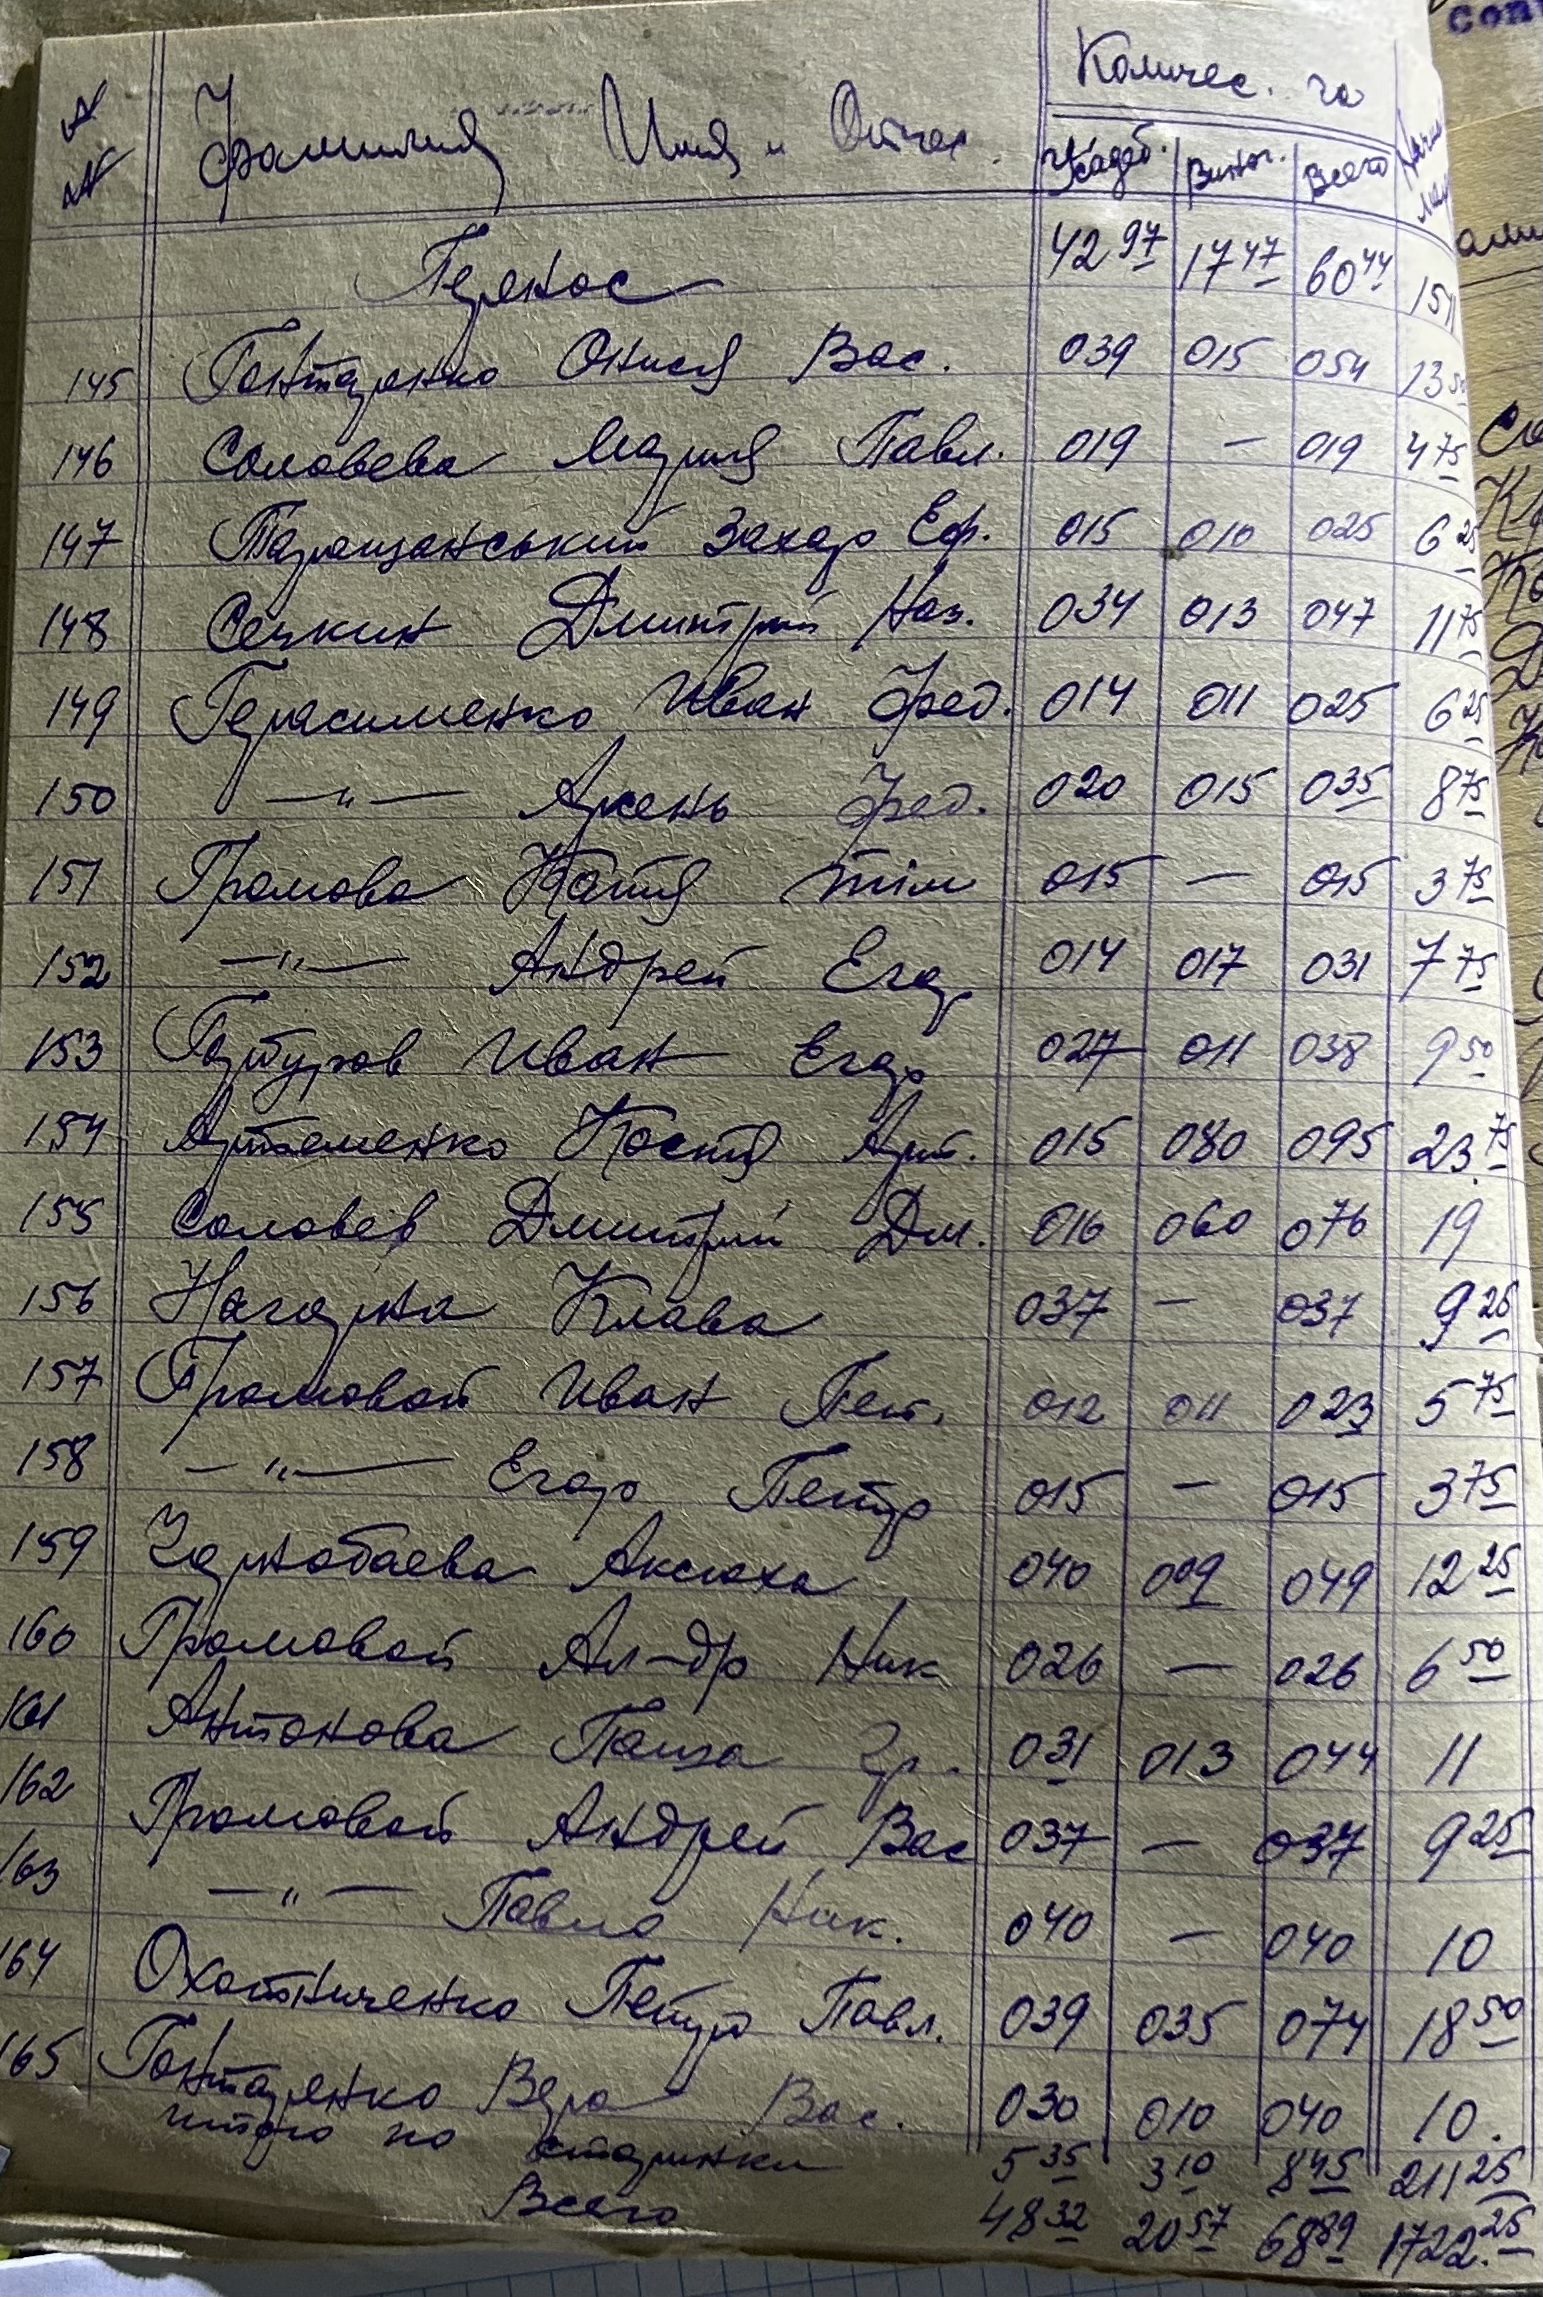 № № Фамилия Имя и Отчес. Количес. га
Усадеб. Виног. Всего
Перенос 42 97 17 47 60 44 151
145 Гонтаренко Онися Вас. 039 015 054 13 50
146 Соловева Мария Павл. 019 — 019 4 75
147 Таращанський Захар Еф. 015 010 025 6 25
148 Сечкин Дмитрий Наз. 034 013 047 11 75
149 Герасименко Иван Фед. 014 011 025 6 25
150 —"— Арсень Фед. 020 015 035 8 75
151 Громова Катя Тім 015 — 015 3 75
152 —"— Андрей Егор 014 017 031 7 75
153 Горбуров Иван Егор 027 011 038 9 50
154 Артеменко Костя Арт. 015 080 095 23 75
155 Соловев Дмитрий Дм. 016 060 076 19
156 Нагорна Клава 037 — 037 9 25
157 Громовой Иван Пет. 012 011 023 5 75
158 —"— Егор Петр 015 — 015 3 75
159 Чернобаева Аксюха 040 009 049 12 25
160 Громовой Ал-др Ник 026 — 026 6 50
161 Антонова Паша Гр. 031 013 044 11
162 Громовой Андрей Вас 037 — 037 9 25
163 —"— Павло Ник. 040 — 040 10
164 Охотниченко Петро Павл. 039 035 074 18 50
165 Гонтаренко Вера Вас. 030 010 040 10.
итого по старинки 5 35 3 10 8 45 211 25
Всего 48 32 20 57 68 89 1722. 25